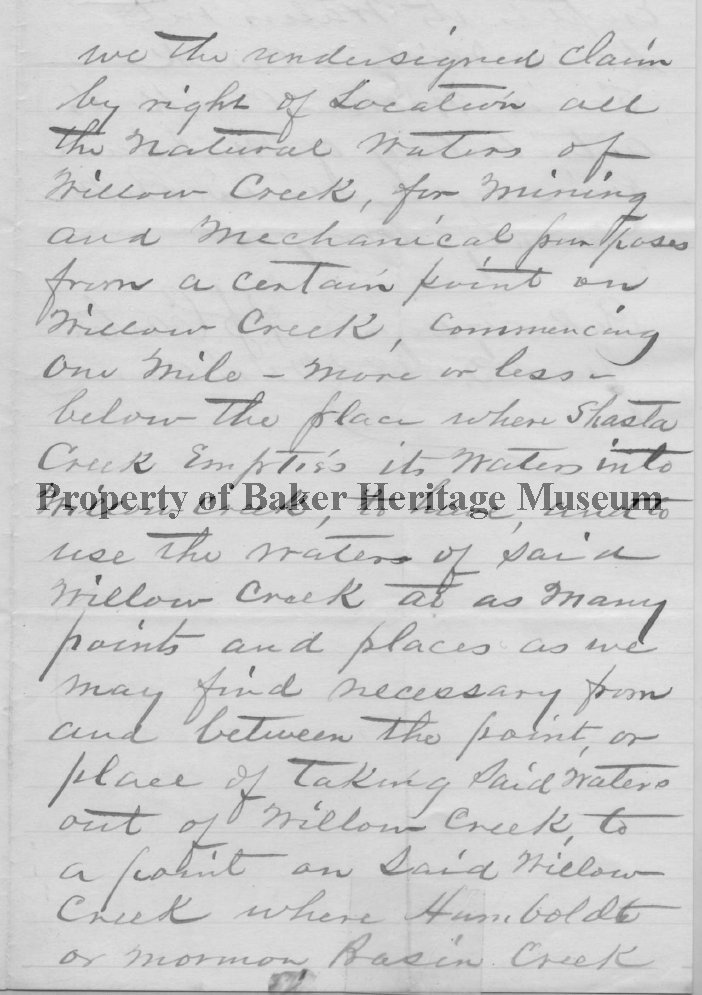 we the undersigned claim
by right of Location all
the Natural Waters of
Willow Creek, for Mining
and Mechanical purposes
from a certain point on
Willow Creek, Commencing
One Mile - More or less -
below the place where Shasta
Creek Emptie's its Waters into
Willow Creek, to have, and to
Property of Baker Heritage Museum
use the Waters of Said
Willow Creek at as Many
points and places as we
may find necessary from
and between the point, or
place of taking Said Waters
out of Willow Creek, to
a point on Said Willow
Creek where Humboldt
or Mormon Basin Creek